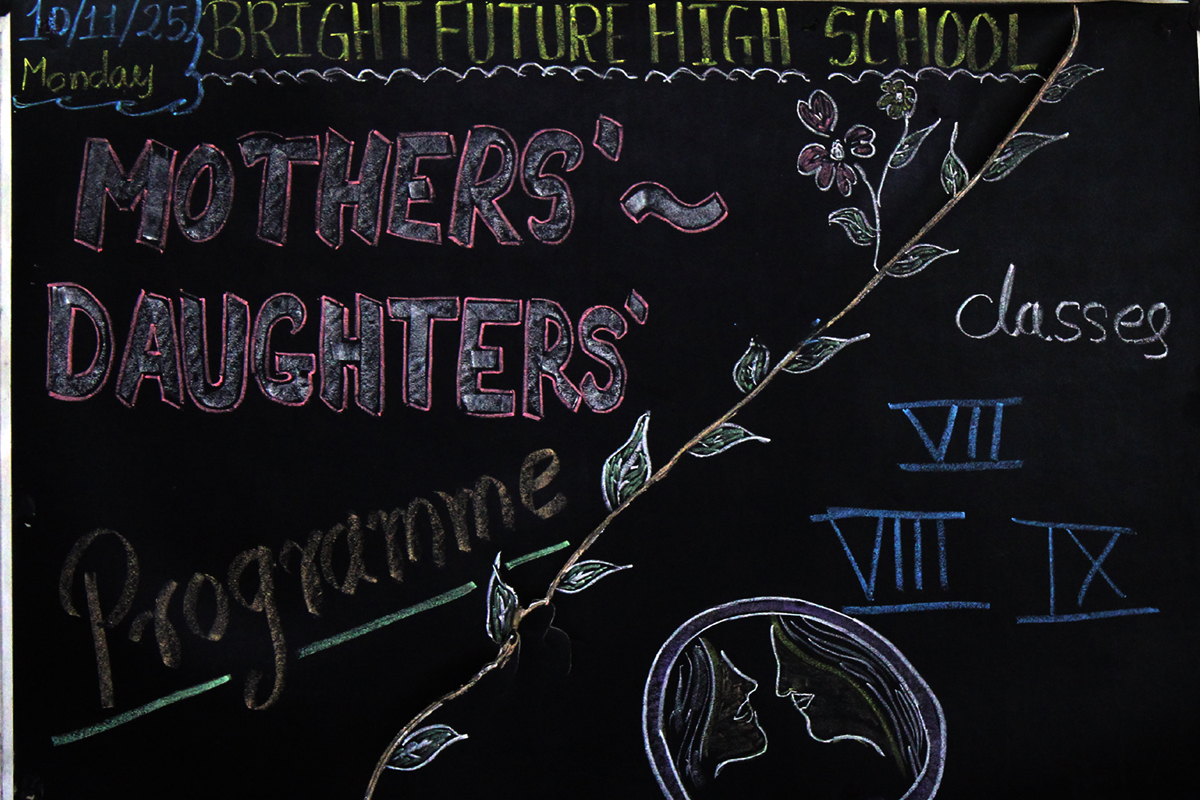 10/11/25
Monday
BRIGHT FUTURE HIGH SCHOOL
MOTHERS' ~
DAUGHTERS'
Programme
classes
VII
VIII IX